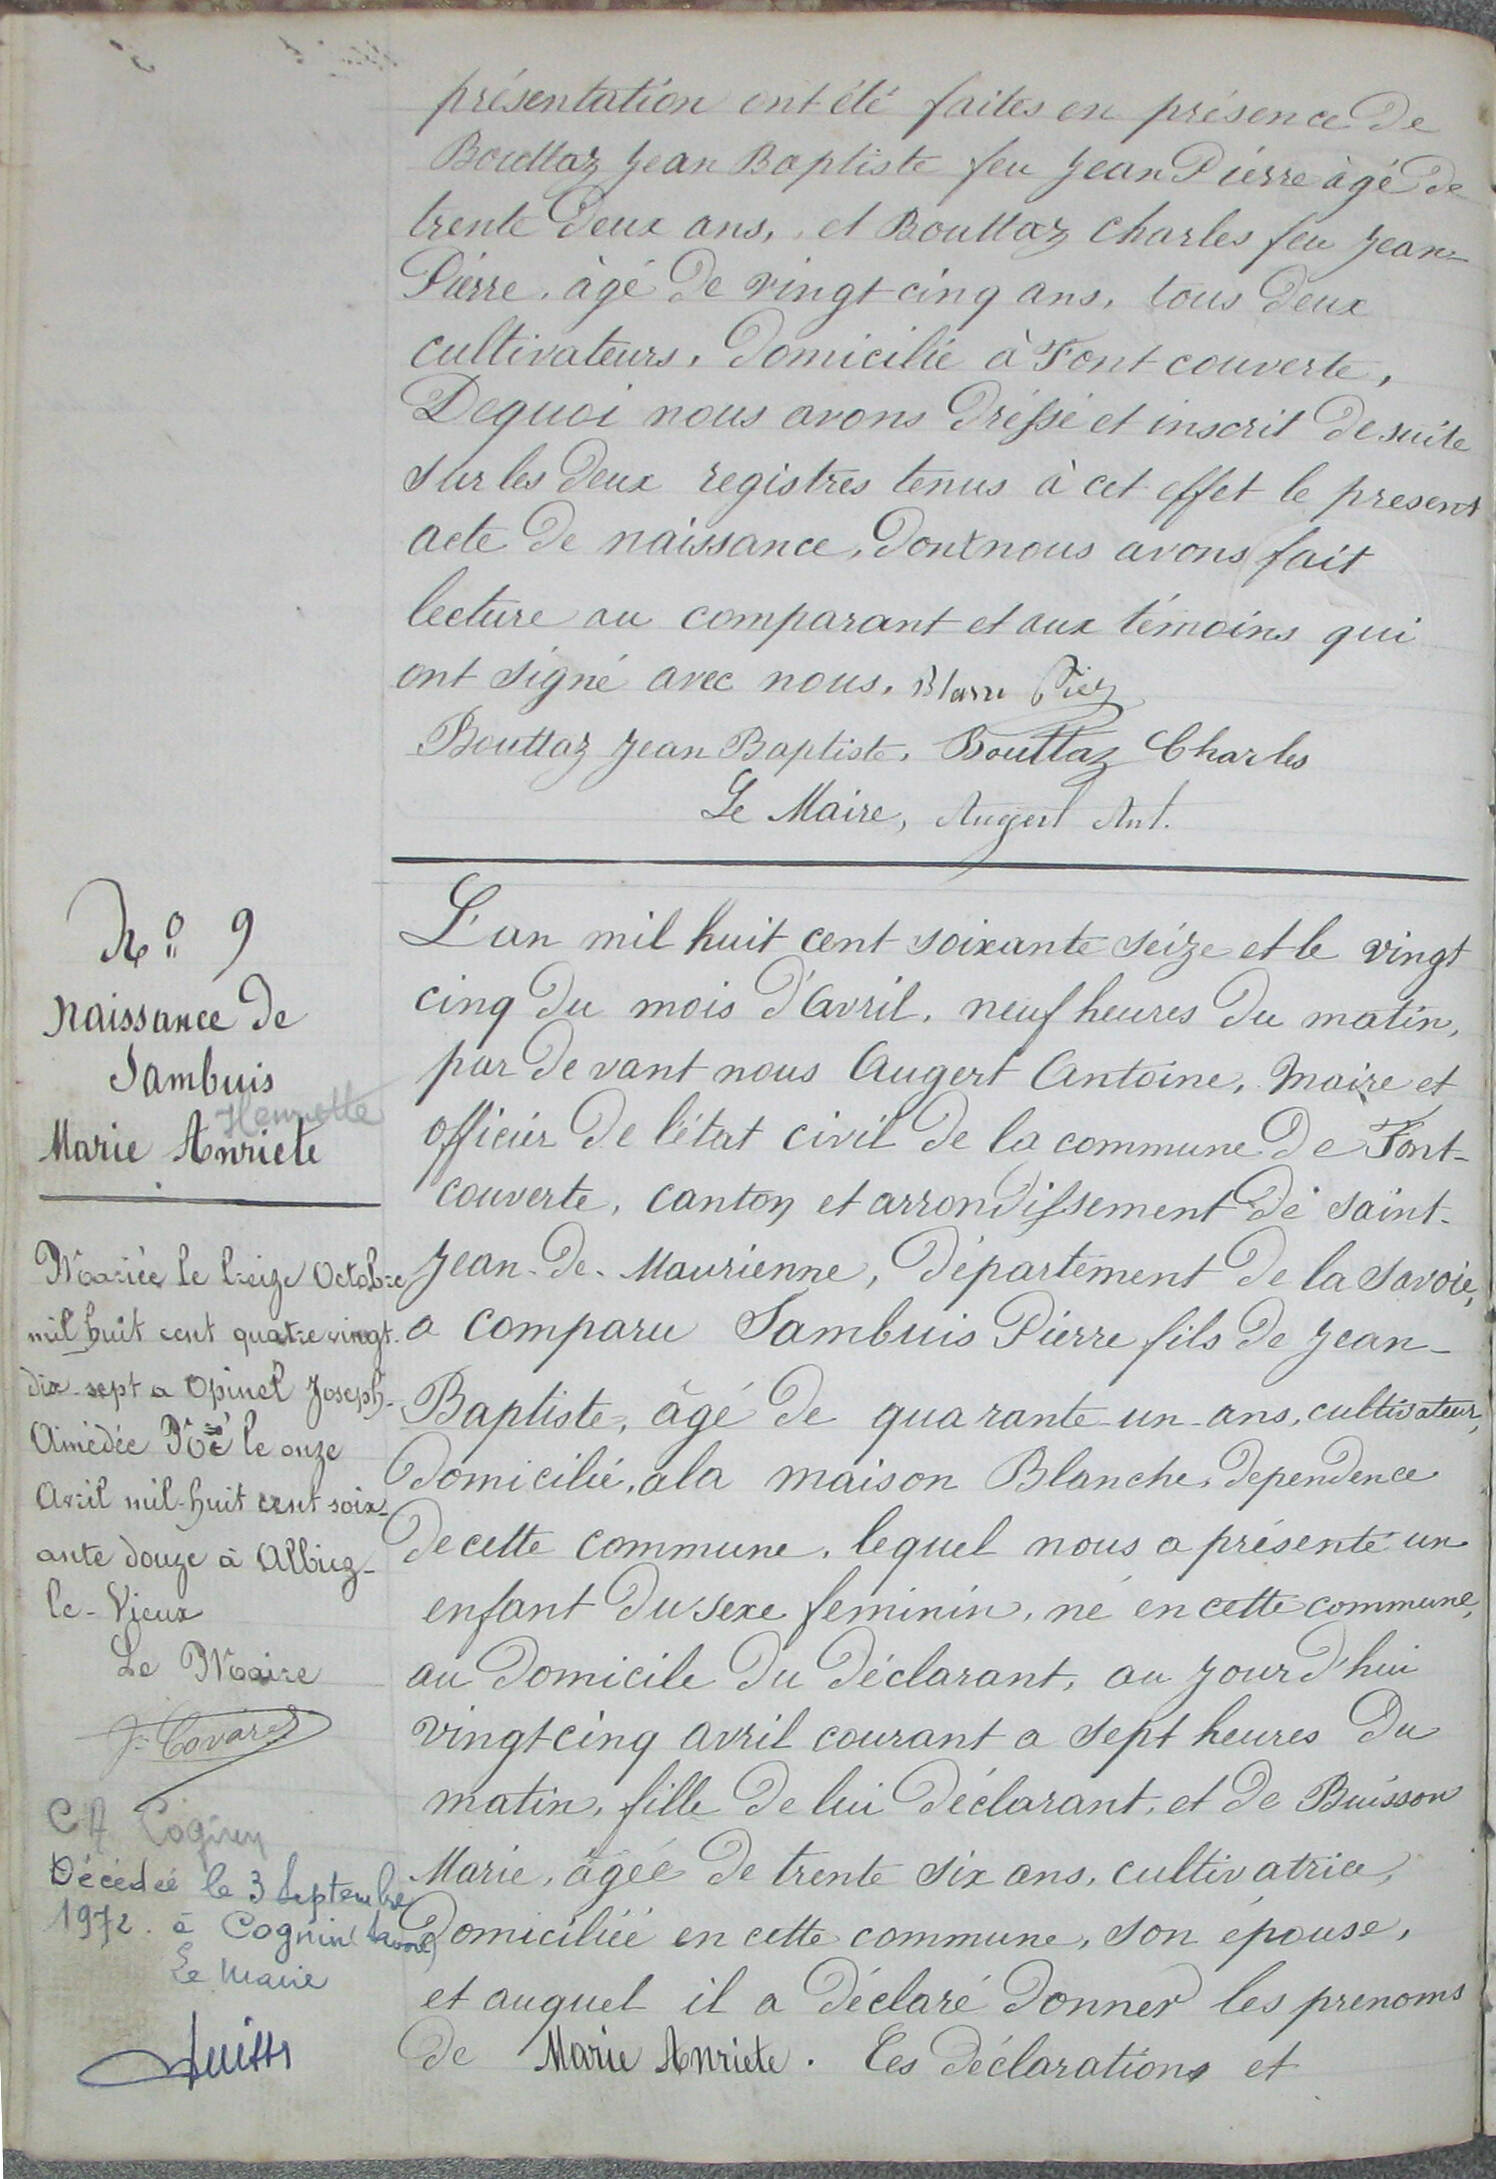 présentation ont été faites en présence de
Bouttaz Jean Baptiste feu Jean Pierre àgé de
trente deux ans, et Bouttaz Charles feu Jean-
Pierre, àgé de vingt cinq ans, tous deux
cultivateurs, domicilié à Font couverte,
Dequoi nous avons dréssé et inscrit de suite
sur les deux registres tenus à cet effet le present
acte de naissance, dont nous avons fait
lecture au comparant et aux témoins qui
ont signé avec nous.
Bouttaz Jean Baptiste. Bouttaz Charles
Le Maire, Augert Ant.
No 9
Naissance de
Sambuis
Henriette
Marie Anriete
Mariée le treize Octobre
mil huit cent quatre vingt-
dix-sept a Opinel Joseph-
Amédée Né le onze
Avril mil-huit cent soix-
ante douze à Albiez-
le-Vieux
Le Maire
Cognin
Décédée le 3 Septembre
1972 à Cognin (Savoie)
Le Maire
L'an mil huit cent soixante seize et le vingt
cinq du mois d'Avril, neuf heures du matin,
par devant nous Augert Antoine, Maire et
officier de l'état civil de la commune de Font-
couverte, canton et arrondissement de Saint-
Jean-de-Maurienne, département de la Savoie,
a comparu Sambuis Pierre fils de Jean-
Baptiste, âgé de quarante-un-ans, cultivateur,
domicilié, a la maison Blanche, dependence
de cette commune, lequel nous a présenté un
enfant du sexe feminin, né en cette commune,
au domicile du déclarant, au jourd'hui
vingt cinq avril courant a sept heures du
matin, fille de lui déclarant, et de Buisson
Marie, âgée de trente six ans, cultivatrice,
domiciliée en cette commune, son épouse,
et auquel il a déclaré donner les prenoms
de Marie Anriete. Ces déclarations et